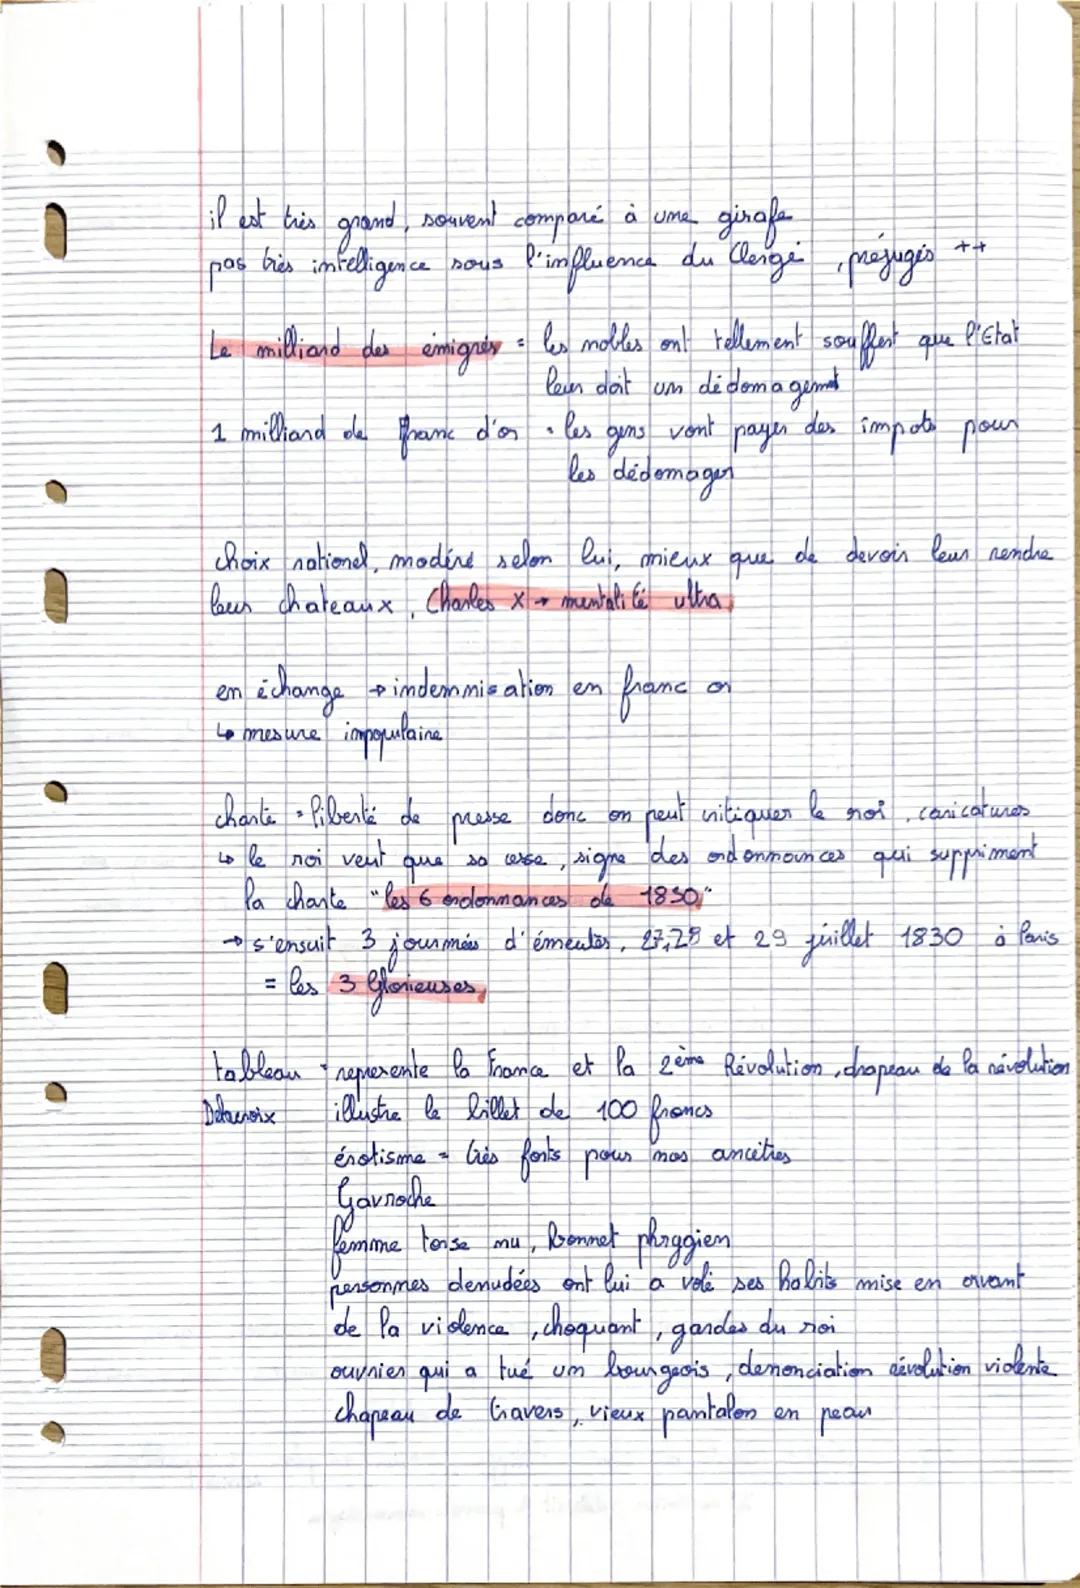 il est très grand, souvent comparé à une girafe
pas très intelligence sous l'influence du Clergé, préjugés ++
Le milliard des émigrés = les nobles ont tellement souffert que l'Etat
leur doit un dédomagemt
1 milliard de franc d'or • les gens vont payer des impots pour
les dédomager
choix nationel, modéré selon lui, mieux que de devoir leur rendre
leurs chateaux, Charles X → mentalité ultra
en échange → indemnisation en franc or
↳ mesure impopulaire
charte = liberté de presse donc on peut critiquer le roi, caricatures
↳ le roi veut que sa cesse, signe des ordonnances qui suppriment
la charte "les 6 ordonnances de 1830"
→ s'ensuit 3 journées d'émeutes, 27,28 et 29 juillet 1830 à Paris
= les 3 Glorieuses
tableau = represente la France et la 2ème Révolution, chapeau de la révolution
Delacroix illustre le billet de 100 francs
érotisme = très forts pour nos ancêtres
Gavroche
femme torse nu, bonnet phrygien
personnes denudées ont lui a volé ses habits mise en avant
de la violence, choquant, gardes du roi
ouvrier qui a tué un bourgeois, denonciation révolution violente
chapeau de travers, vieux pantalon en peau